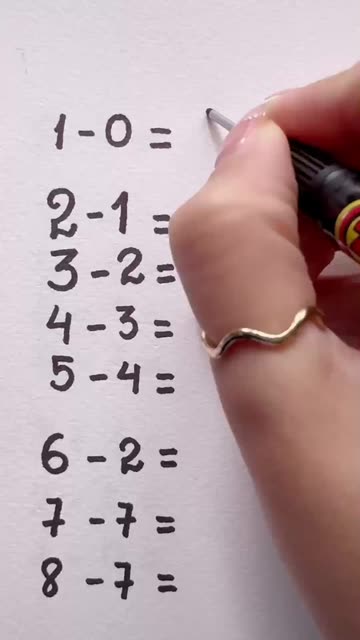 1 - 0 =
2 - 1 =
3 - 2 =
4 - 3 =
5 - 4 =
6 - 2 =
7 - 7 =
8 - 7 =